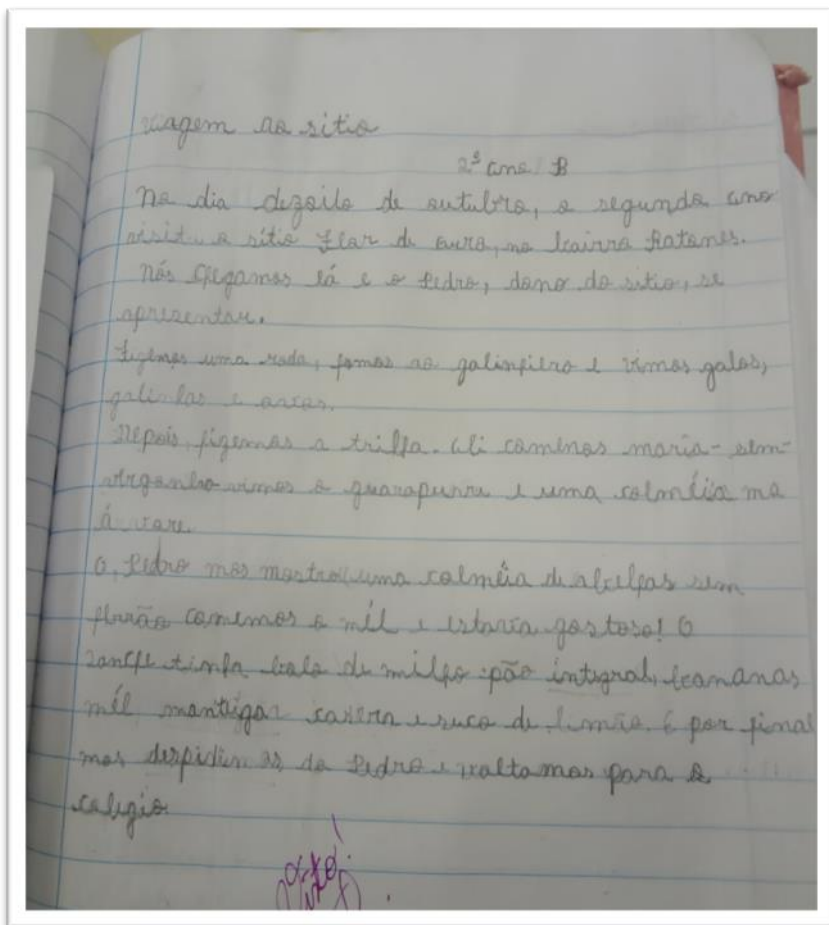 viagem ao sitio
2º ano B
No dia dezoito de outubro, o segundo ano
visitou o sítio Flor de ouro, no bairro Ratones.
Nós chegamos lá e o Pedro, dono do sitio, se
apresentou.
Fizemos uma roda, fomos ao galinheiro e vimos galos,
galinhas e
Depois, fizemos a trilha. Ali comemos maria-sem-
vergonha vimos o guarapuvu e uma colméia na
árvore.
O, Pedro nos mostrou uma colméia de abelhas sem
ferrão comemos o mél e estava gostoso! O
lanche tinha bolo de milho pão integral, bananas
mél manteiga e suco de limão. E por final
nos despidimos do Pedro e voltamos para o
colégio
Visto!